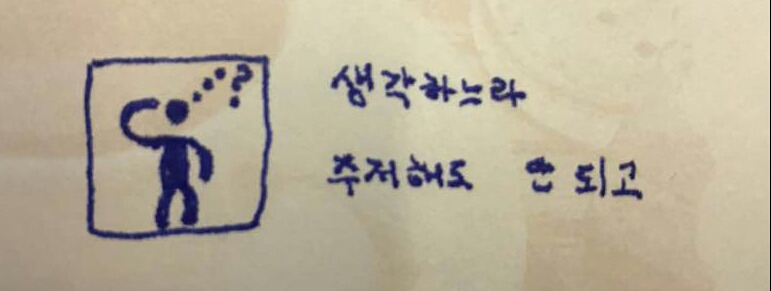 생각하느라
주저해도 안 되고